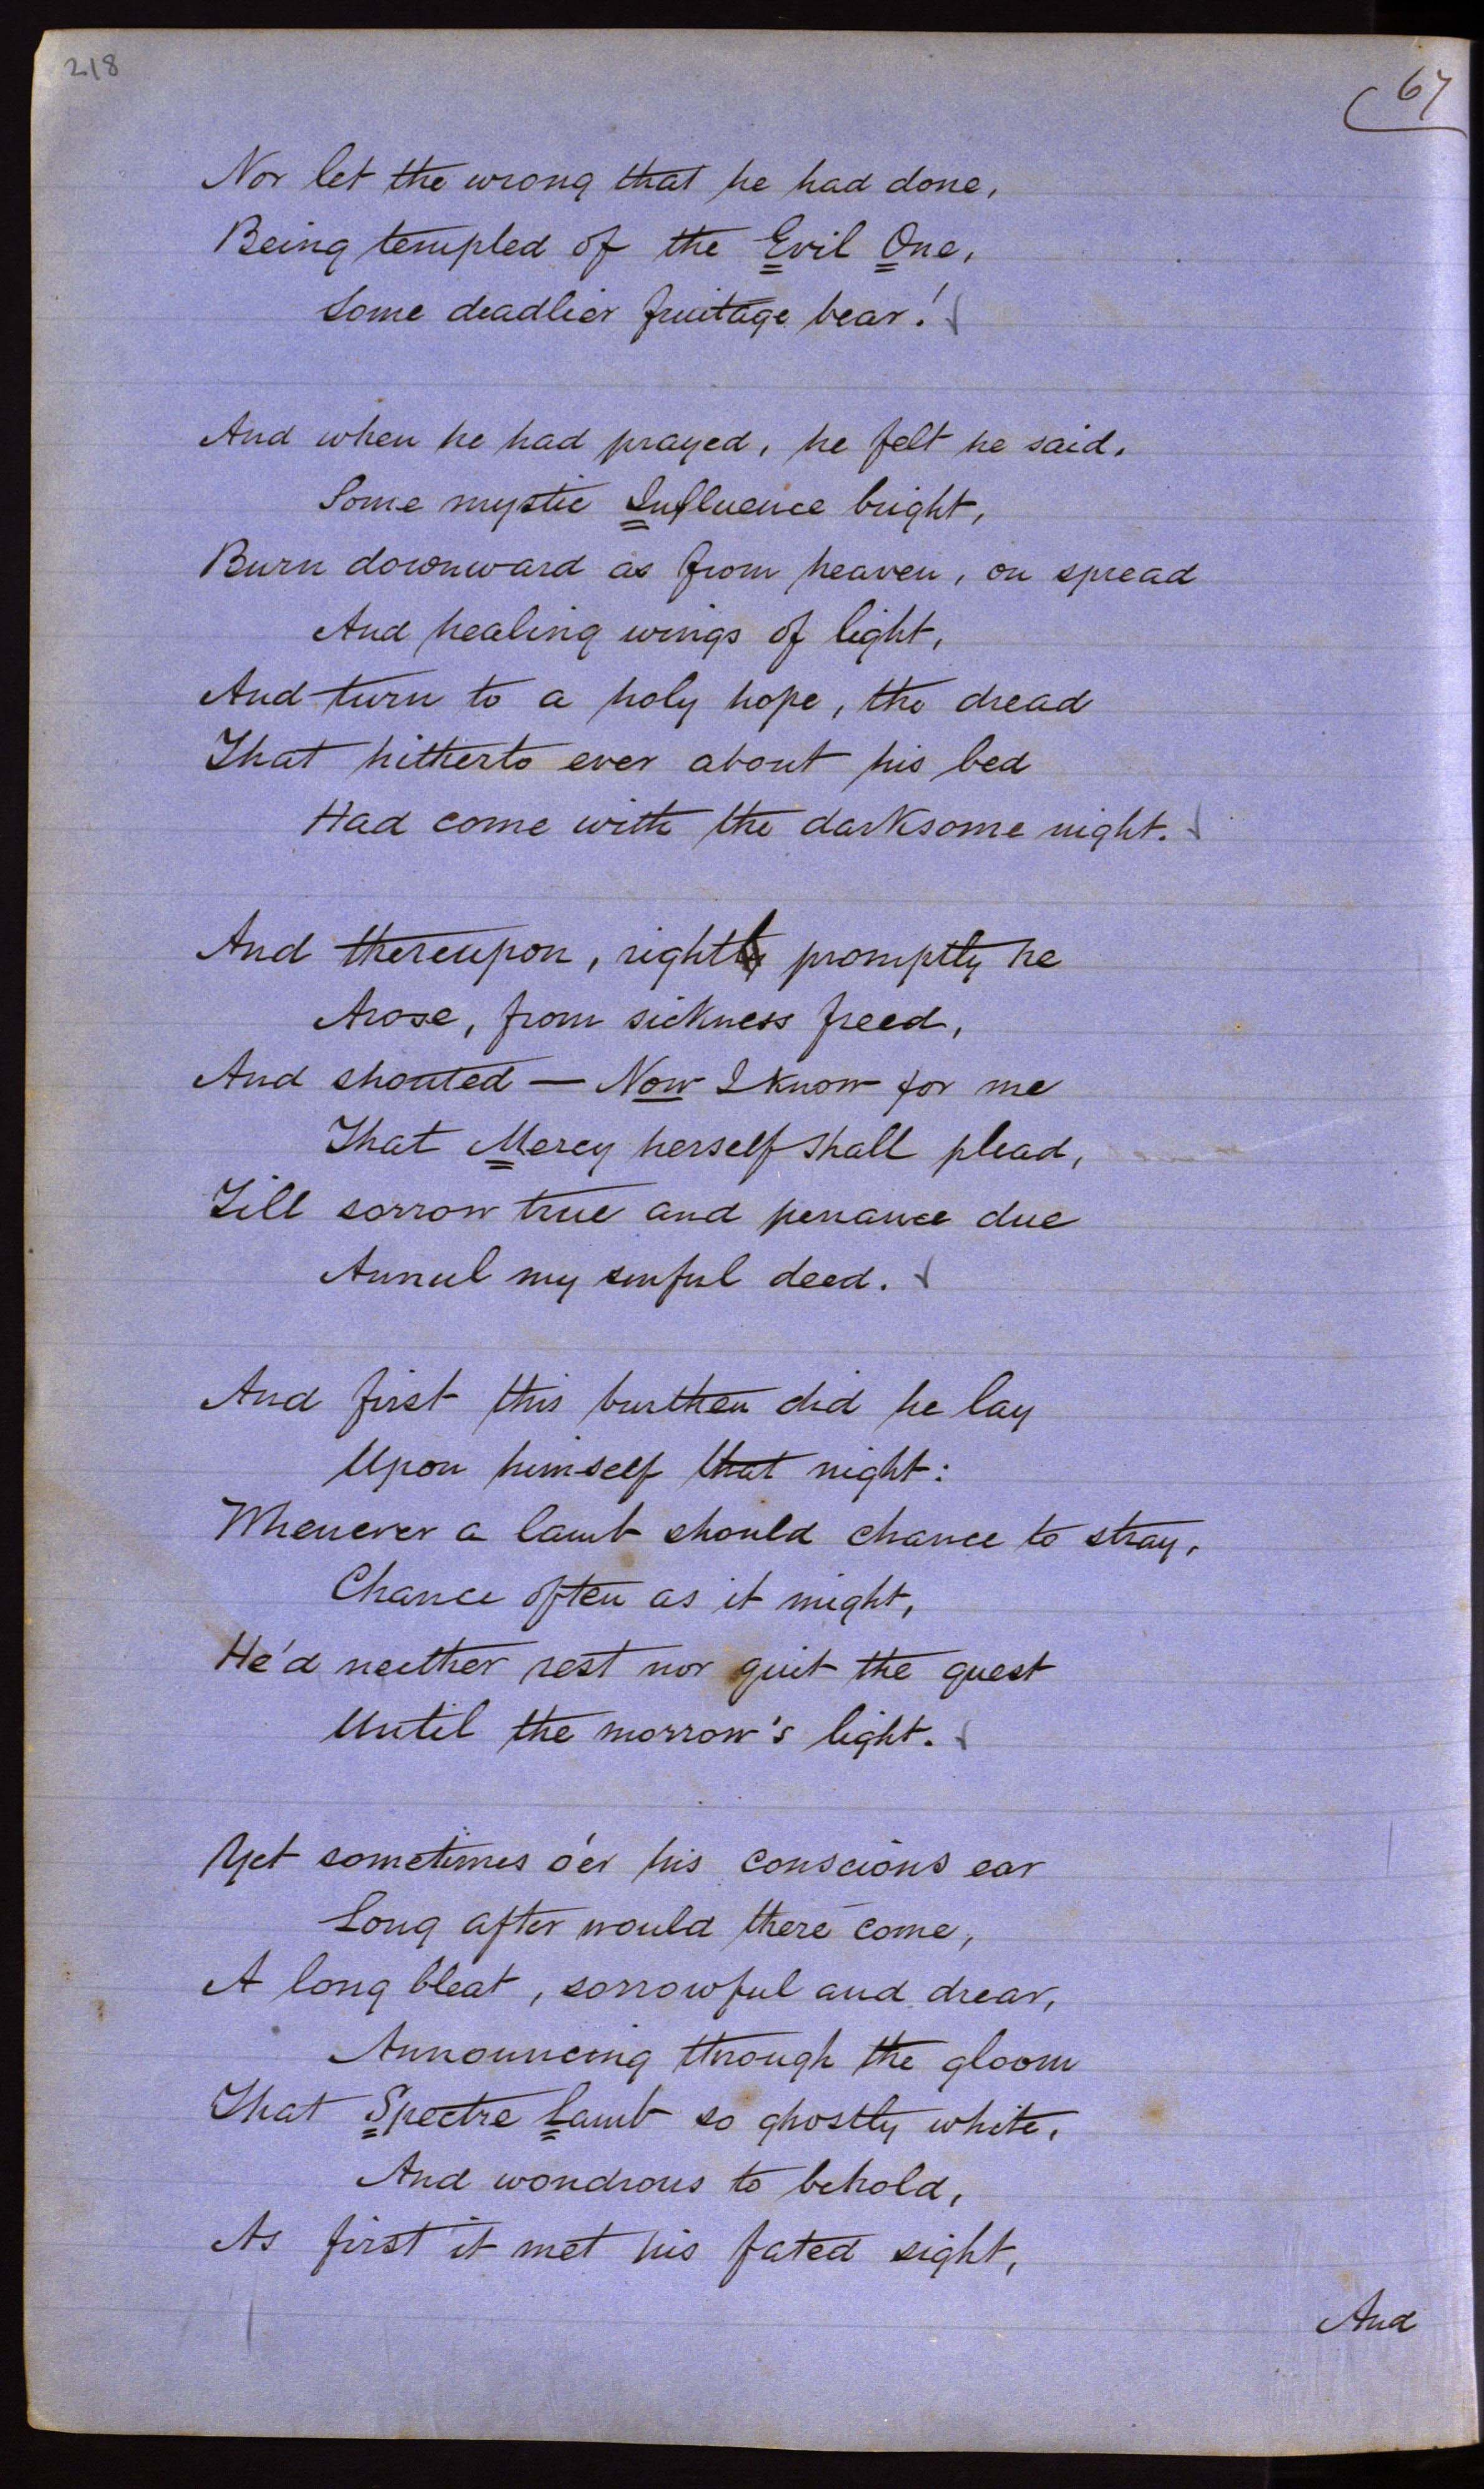 218
67
Nor let the wrong that he had done,
Being templed of the Evil One,
Some deadlier fruitage bear!
And when he had prayed, he felt he said,
Some mystic Influence bright,
Burn downward as from heaven, on spread
And healing wings of light,
And turn to a holy hope, the dread
That hitherto ever about his bed
Had come with the darksome night.
And thereupon, right promptly he
Arose, from sickness freed,
And shouted — Now I know for me
That Mercy herself shall plead,
Till sorrow true and penance due
Annul my sinful deed.
And first this burthen did he lay
Upon himself that night:
Whenever a lamb should chance to stray,
Chance often as it might,
He'd neither rest nor quit the quest
Until the morrow's light.
Yet sometimes o'er his conscious ear
Long after would there come,
A long bleat, sorrowful and drear,
Announcing through the gloom
That Spectre Lamb so ghostly white,
And wondrous to behold,
As first it met his fated sight,
And